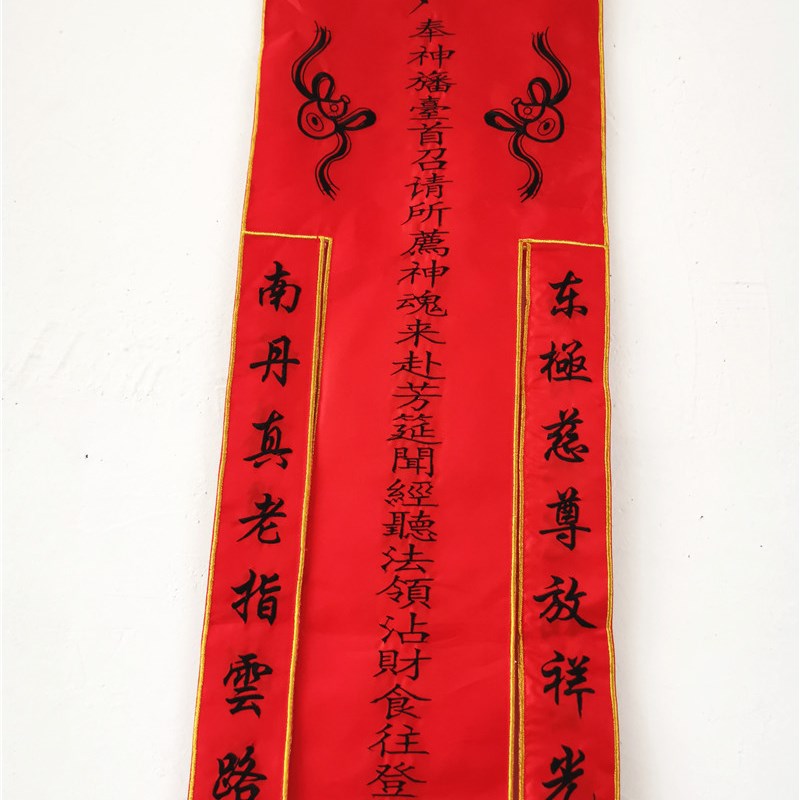 东極慈尊放祥光
奉神旛臺首召请所薦神魂来赴芳筵聞經聽法領沾財食往登
南丹真老指雲路